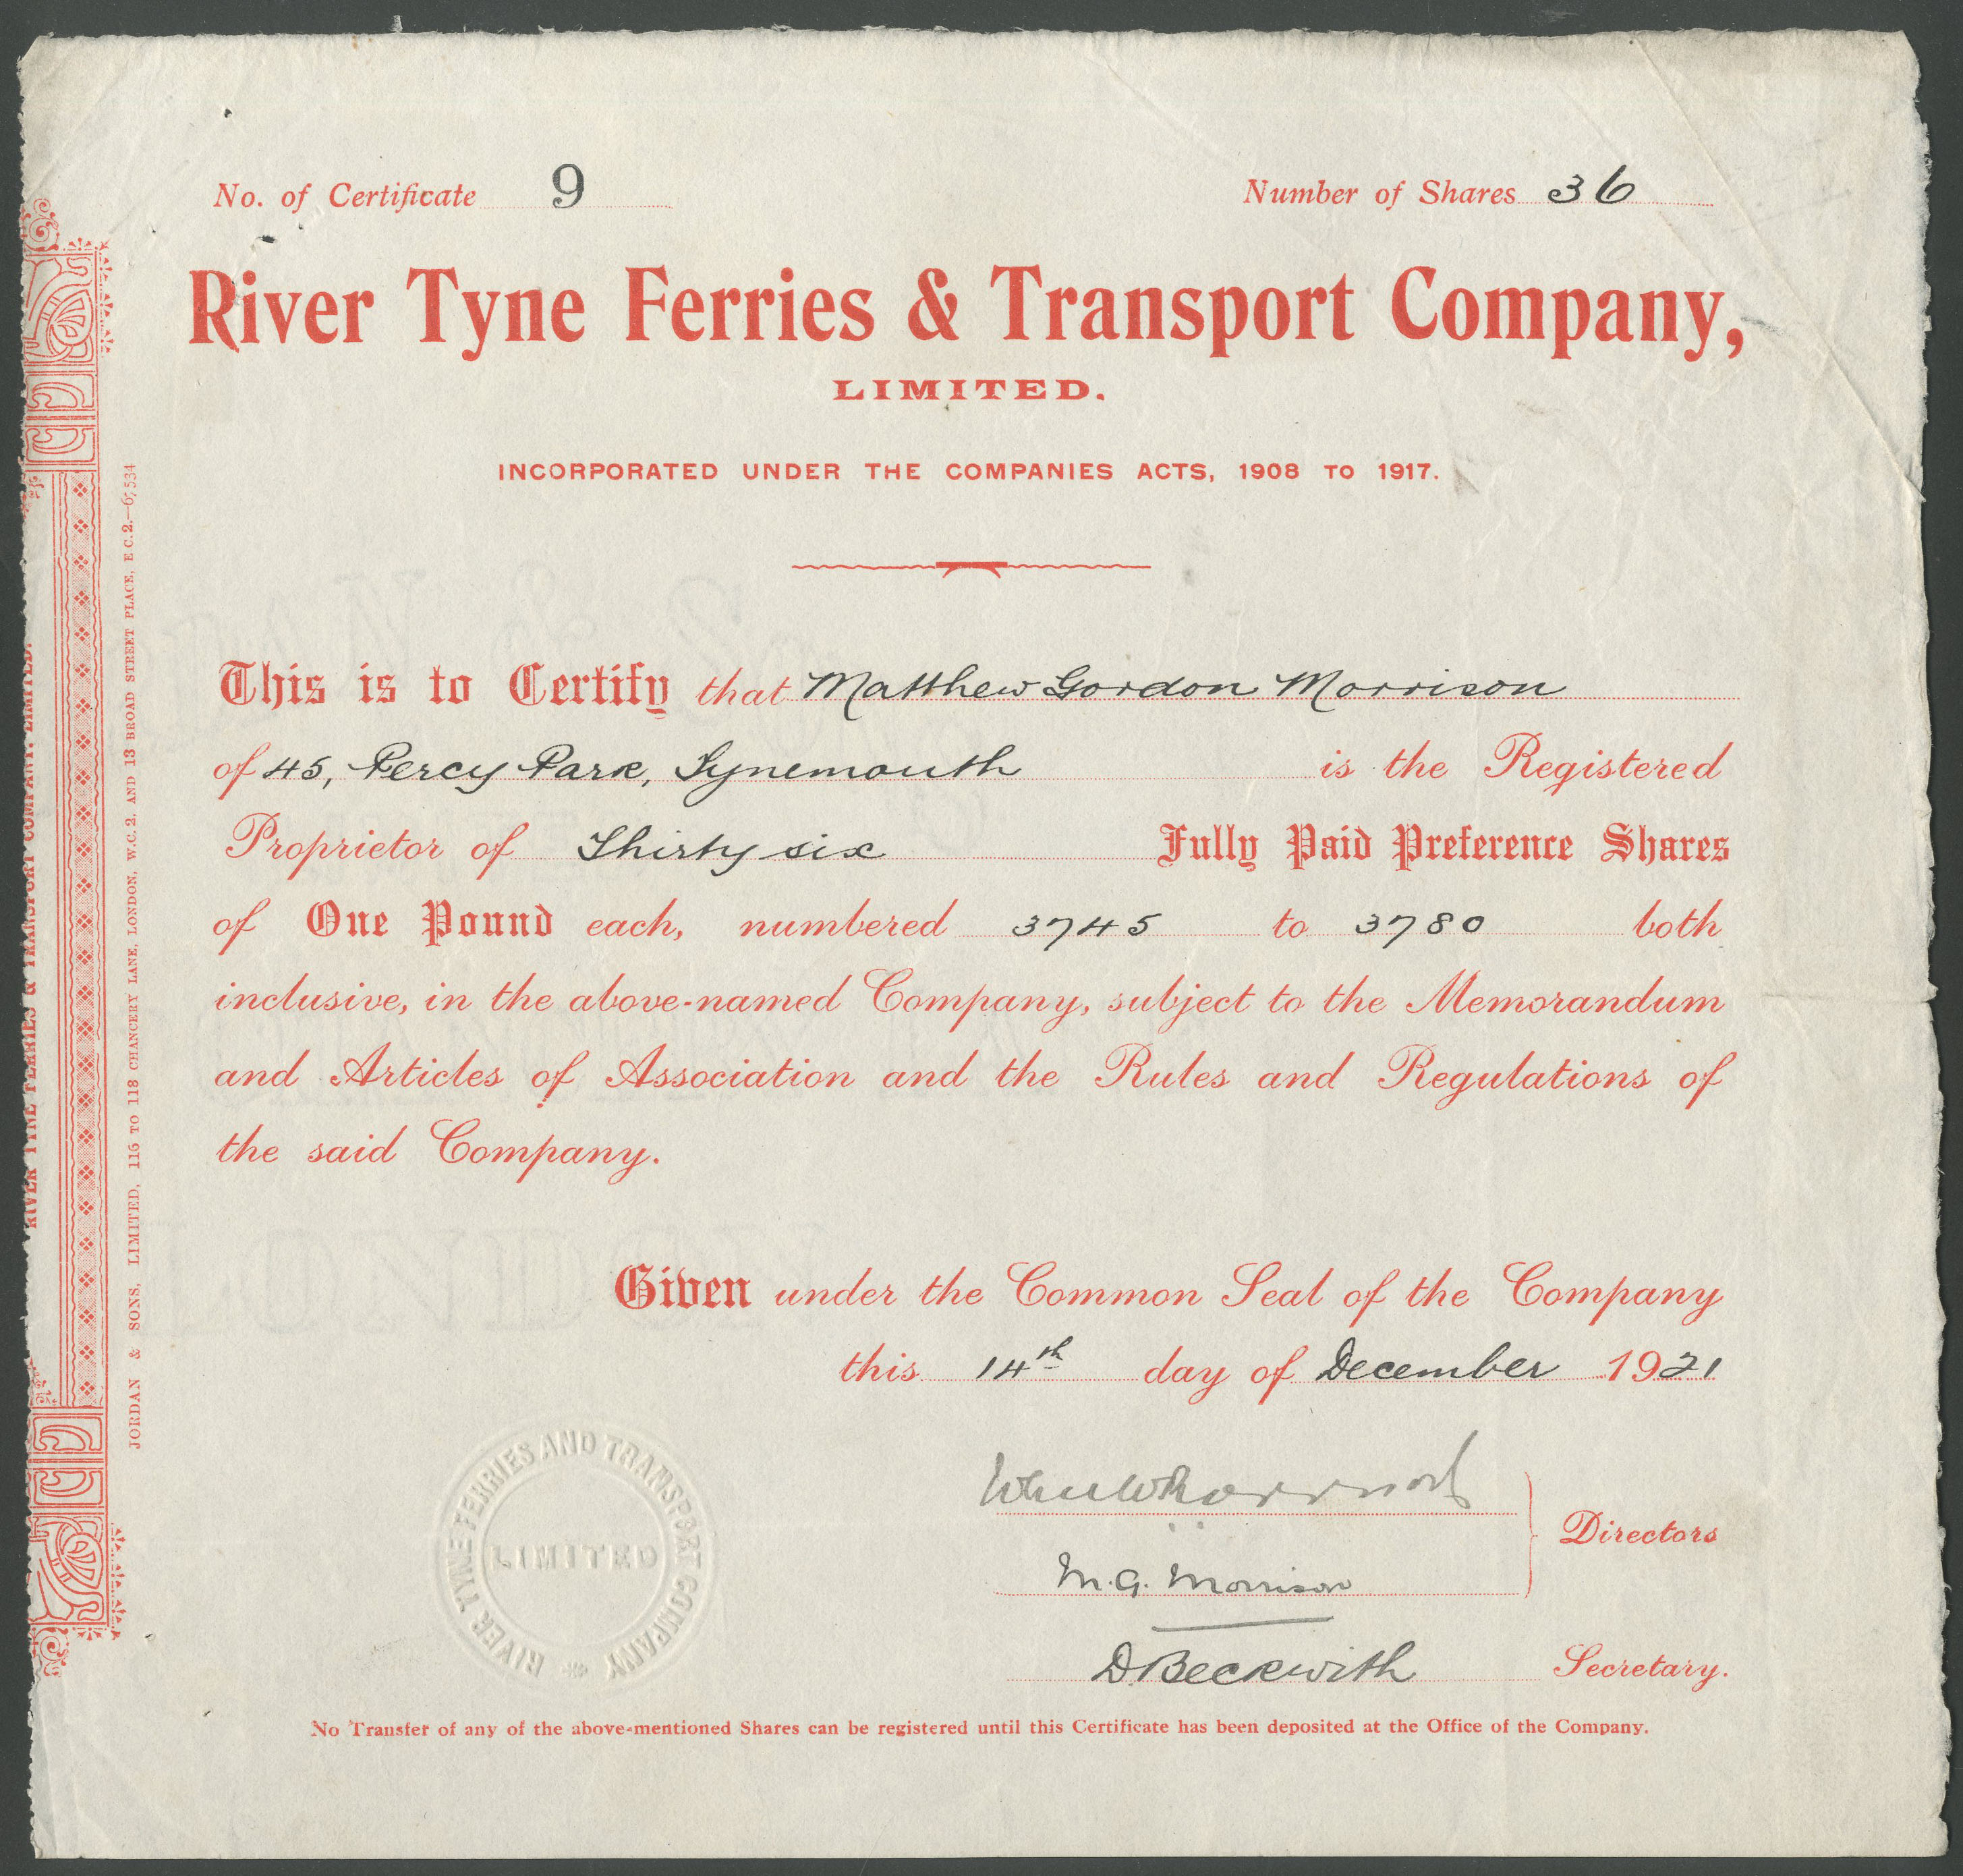 No. of Certificate 9
Number of Shares 36
River Tyne Ferries & Transport Company,
LIMITED.
INCORPORATED UNDER THE COMPANIES ACTS, 1908 TO 1917.
This is to Certify that Matthew Gordon Morrison
of 45, Percy Park, Tynemouth is the Registered
Proprietor of Thirty six Fully Paid Preference Shares
of One Pound each, numbered 3745 to 3780 both
inclusive, in the above-named Company, subject to the Memorandum
and Articles of Association and the Rules and Regulations of
the said Company.
Given under the Common Seal of the Company
this 14th day of December 1921
Directors
M.G. Morrison
D Beckwith Secretary.
RIVER TYNE FERRIES AND TRANSPORT COMPANY
LIMITED
No Transfer of any of the above-mentioned Shares can be registered until this Certificate has been deposited at the Office of the Company.
JORDAN & SONS, LIMITED, 116 TO 118 CHANCERY LANE, LONDON, W.C.2, AND 13 BROAD STREET PLACE, E.C.2.—67534
RIVER TYNE FERRIES & TRANSPORT COMPANY, LIMITED.